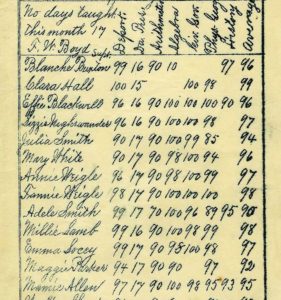 No days taught
this month 17
F. W. Boyd Supt.
Deport. Arithmetic Algebra History Average
Blanche Burton 99 16 90 10 97 96
Clara Hall 100 15 100 98 99
Effie Blackwell 96 16 90 100 100 100 90 96
Lizzie 96 16 90 100 98 97
Julia Smith 90 17 90 100 99 85 94
May White 90 17 90 98 100 94 96
Annie Wrigle 96 17 90 98 100 99 97
Fannie Wrigle 98 17 100 100 100 98
Adele Smith 99 17 70 100 96 89 95 90
Willie Lamb 99 16 90 100 98 99 98
Emma Locey 99 17 90 95 100 98 97
Maggie Parker 94 17 90 90 97 92
Mamie Allen 97 17 90 100 98 95 93 95